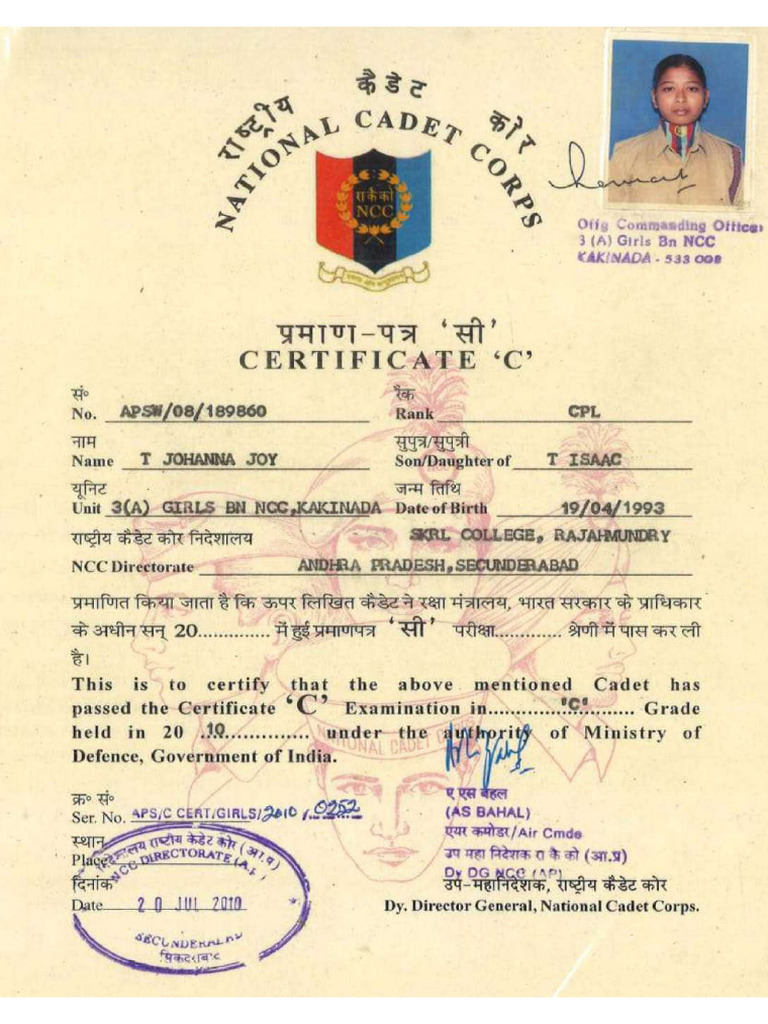 राष्ट्रीय कैडेट कोर
NATIONAL CADET CORPS
रा कै को
NCC
Offg Commanding Officer
3 (A) Girls Bn NCC
KAKINADA - 533 008
प्रमाण-पत्र 'सी'
CERTIFICATE 'C'
सं० रैंक
No. APSW/08/189860 Rank CPL
नाम सुपुत्र/सुपुत्री
Name T JOHANNA JOY Son/Daughter of T ISAAC
यूनिट जन्म तिथि
Unit 3(A) GIRLS BN NCC,KAKINADA Date of Birth 19/04/1993
राष्ट्रीय कैडेट कोर निदेशालय SKRL COLLEGE, RAJAHMUNDRY
NCC Directorate ANDHRA PRADESH,SECUNDERABAD
प्रमाणित किया जाता है कि ऊपर लिखित कैडेट ने रक्षा मंत्रालय, भारत सरकार के प्राधिकार
के अधीन सन् 20.............. में हुई प्रमाणपत्र 'सी' परीक्षा............. श्रेणी में पास कर ली
है।
This is to certify that the above mentioned Cadet has
passed the Certificate 'C' Examination in...'C'... Grade
held in 20 10 ............... under the authority of Ministry of
Defence, Government of India.
NATIONAL CADET CORPS
क्र० सं० ए एस बहल
Ser. No. APS/C CERT/GIRLS/2010/0252 (AS BAHAL)
स्थान एयर कमोडर/Air Cmde
Place उप महा निदेशक रा कै को (आ.प्र)
Dy DG NCC (AP)
दिनांक उप-महानिदेशक, राष्ट्रीय कैडेट कोर
Date 20 JUL 2010 Dy. Director General, National Cadet Corps.
निदेशालय राष्ट्रीय केडेट कोर (आ.प्र)
NCC DIRECTORATE (A.P)
SECUNDERABAD
सिकंदराबाद